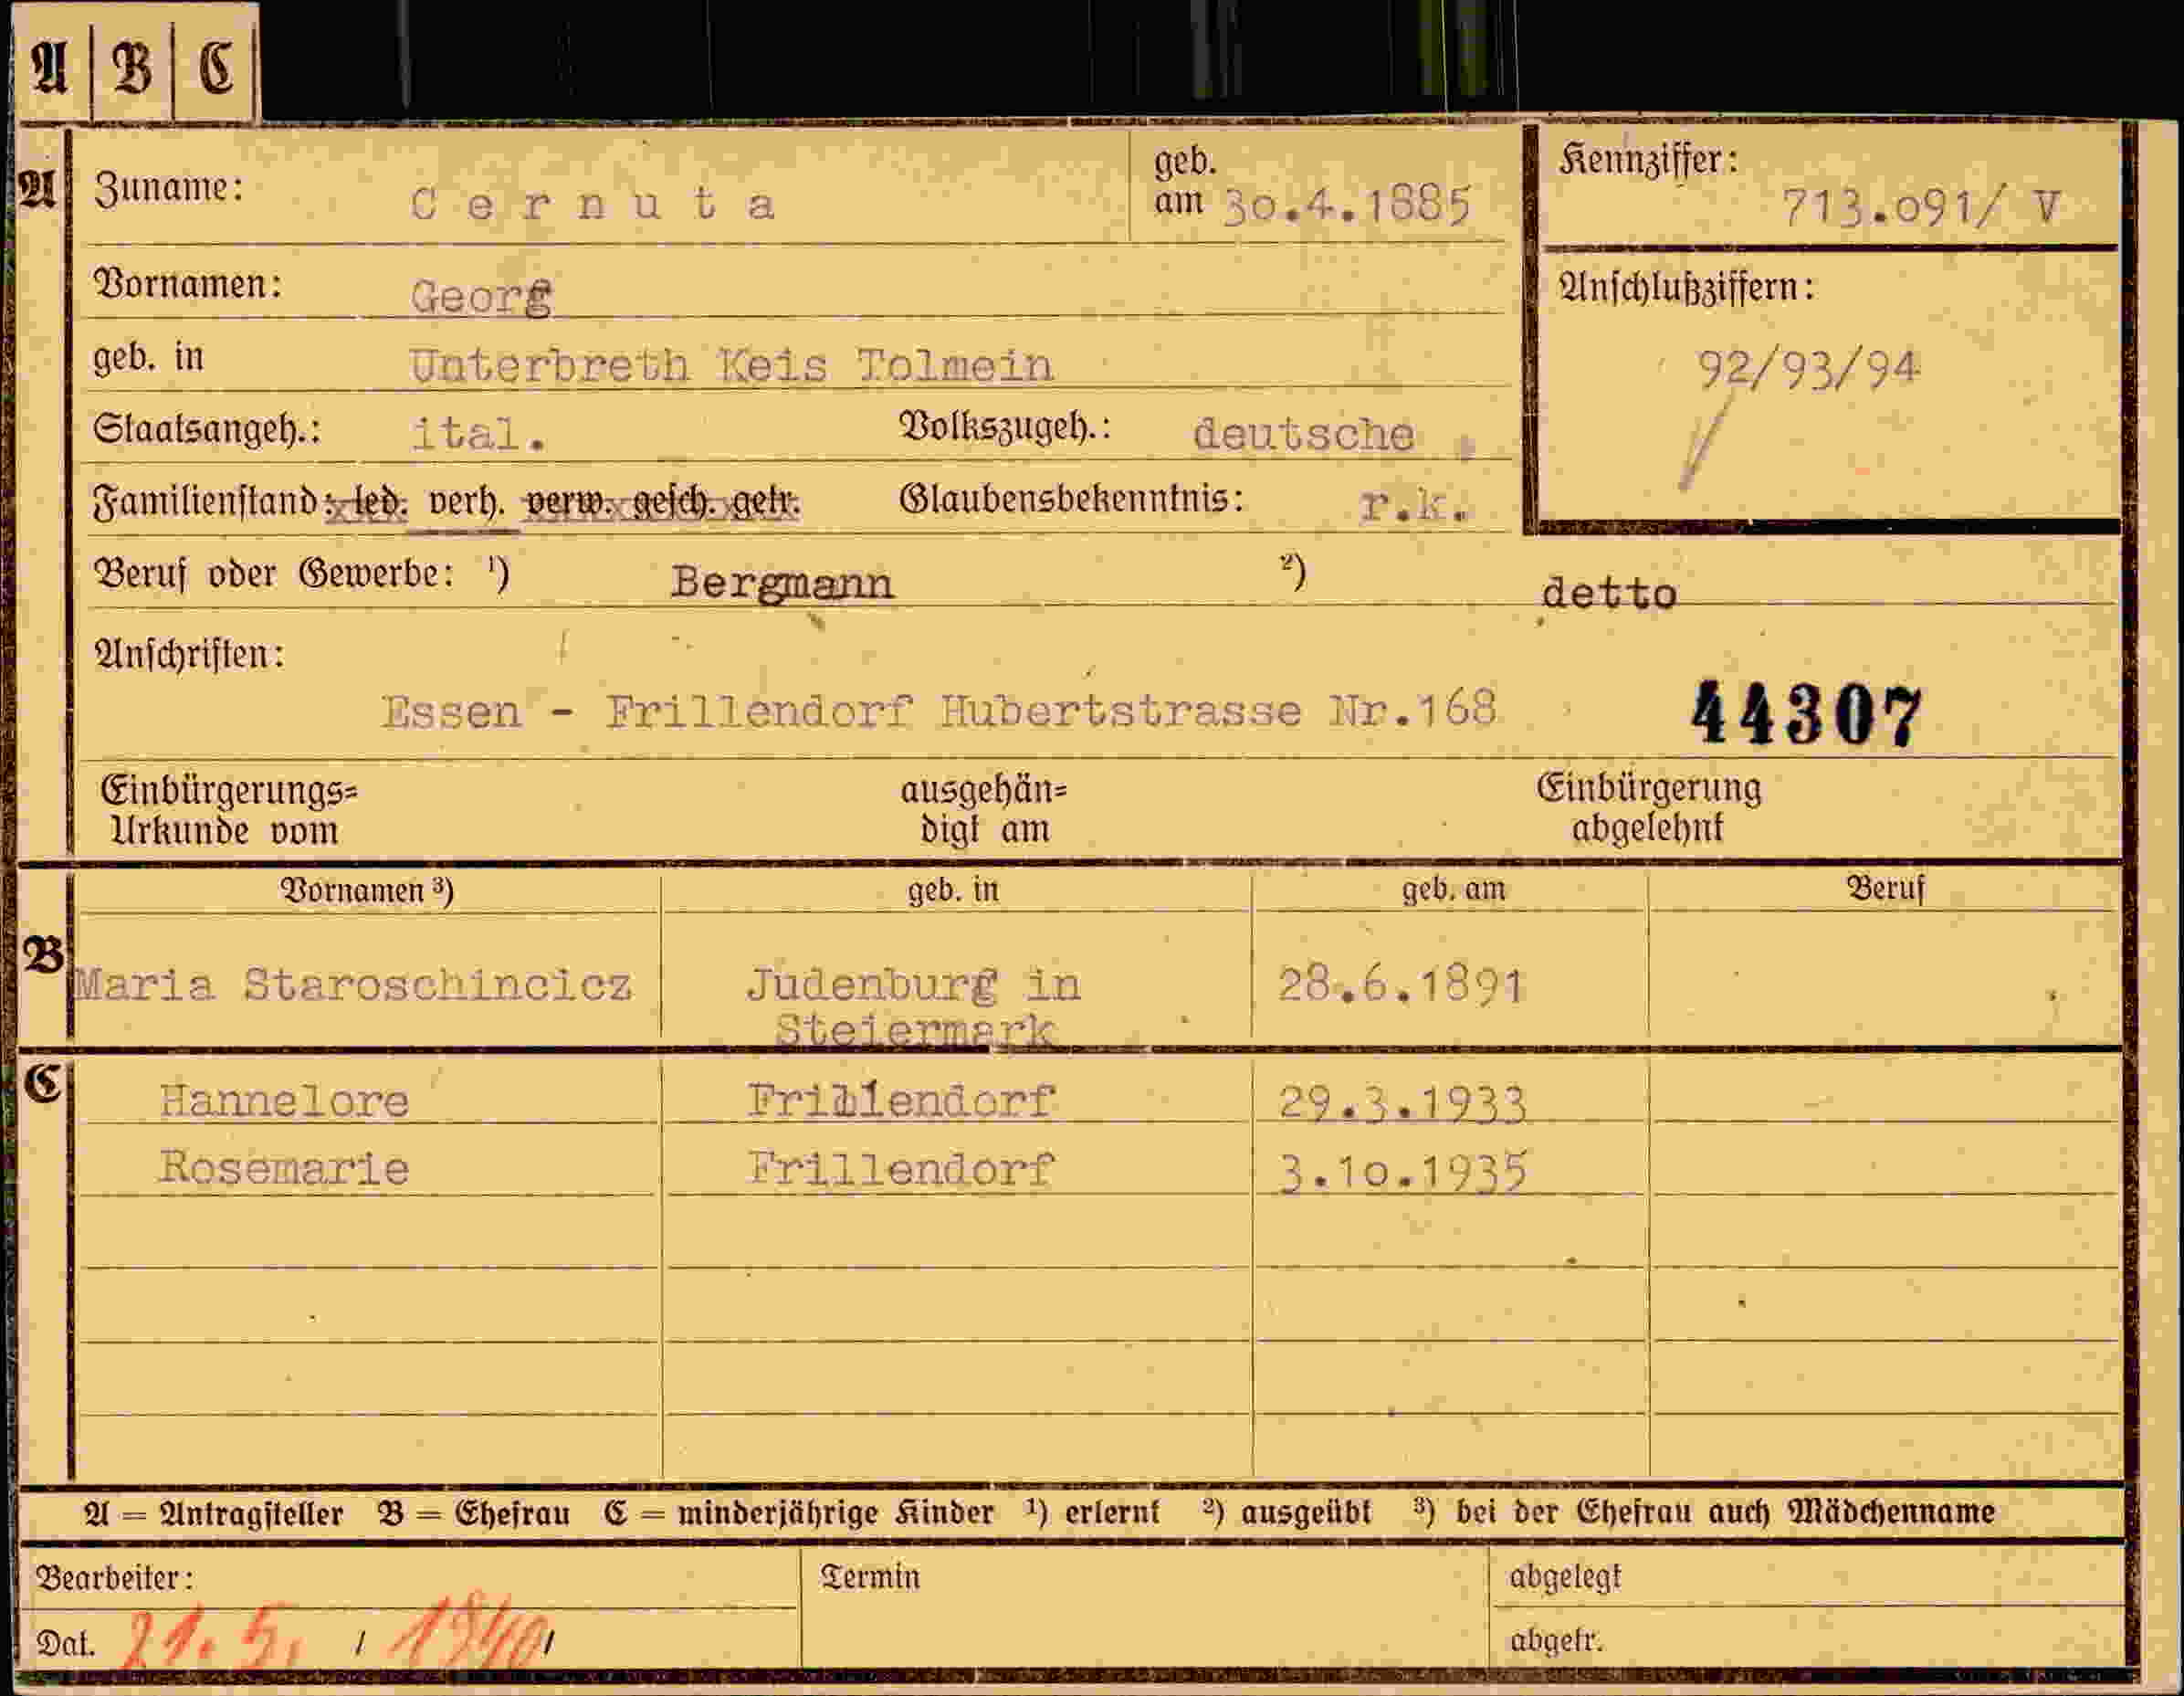 A B C
A Zuname: Cernuta geb. am 30.4.1885 Kennziffer: 713.091/ V
Vornamen: Georg Anschlußziffern:
geb. in Unterbreth Keis Tolmein 92/93/94
Staatsangeh.: ital. Volkszugeh.: deutsche
Familienstand: led. verh. verw. gesch. getr. Glaubensbekenntnis: r.k.
Beruf oder Gewerbe: ¹) Bergmann ²) detto
Anschriften:
Essen - Frillendorf Hubertstrasse Nr.168 44307
Einbürgerungs= ausgehän= Einbürgerung
Urkunde vom digt am abgelehnt
Vornamen ³) geb. in geb. am Beruf
B Maria Staroschincicz Judenburg in 28.6.1891
Steiermark
C Hannelore Frillendorf 29.3.1933
Rosemarie Frillendorf 3.10.1935
A = Antragsteller B = Ehefrau C = minderjährige Kinder ¹) erlernt ²) ausgeübt ³) bei der Ehefrau auch Mädchenname
Bearbeiter: Termin abgelegt
Dat. 21.5. / 1940/ abgetr.